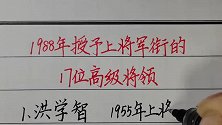 1988年授予上将军街的
17位高级将领
1.洪学智 1955年上将